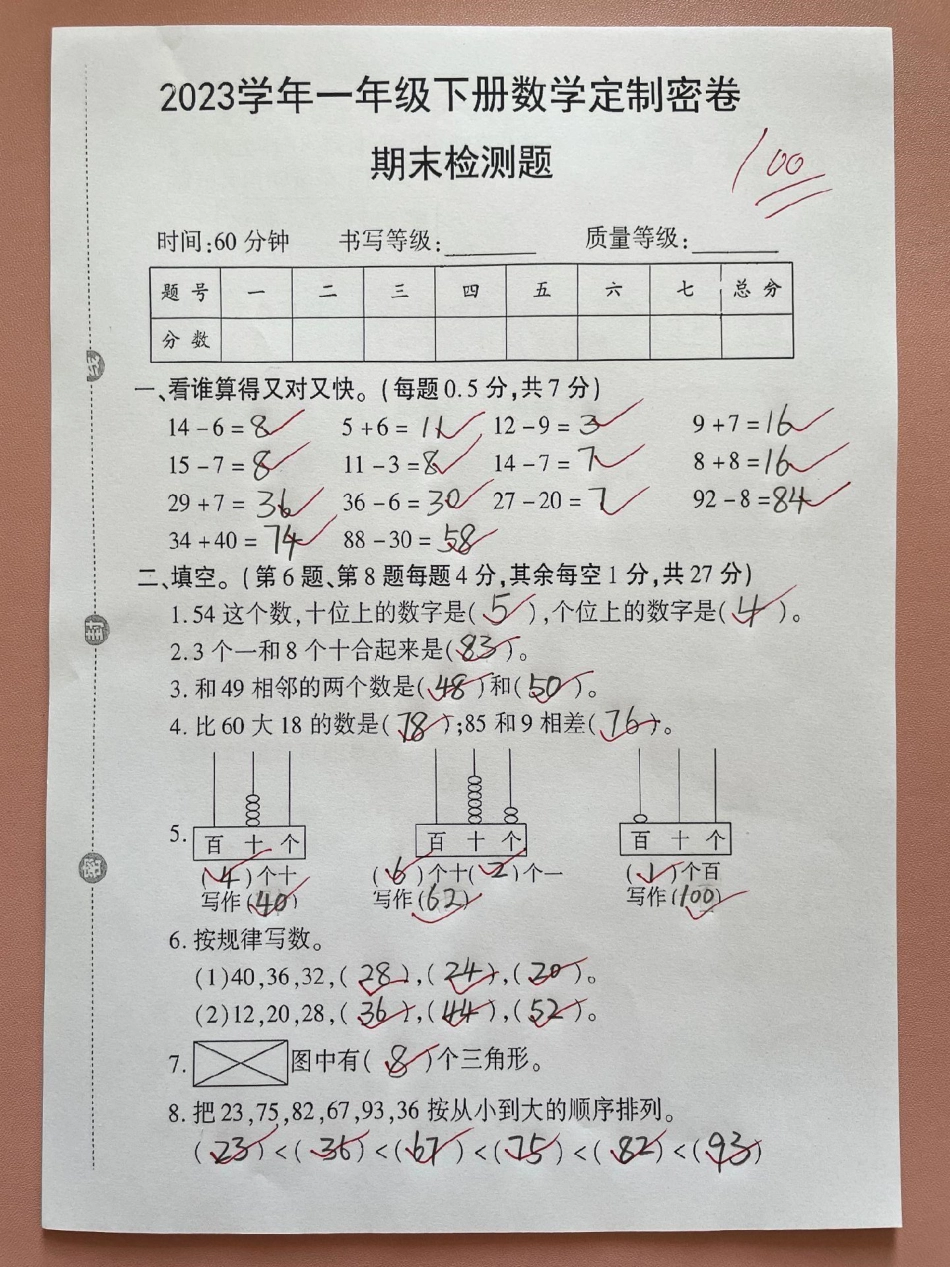 2023学年一年级下册数学定制密卷
期末检测题
100
时间:60分钟 书写等级:______ 质量等级:______
题号 一 二 三 四 五 六 七 总分
分数
一、看谁算得又对又快。(每题0.5分,共7分)
14-6=8 5+6=11 12-9=3 9+7=16
15-7=8 11-3=8 14-7=7 8+8=16
29+7=36 36-6=30 27-20=7 92-8=84
34+40=74 88-30=58
二、填空。(第6题、第8题每题4分,其余每空1分,共27分)
1.54这个数,十位上的数字是(5),个位上的数字是(4)。
2.3个一和8个十合起来是(83)。
3.和49相邻的两个数是(48)和(50)。
4.比60大18的数是(78);85和9相差(76)。
5. 百 十 个 百 十 个 百 十 个
(4)个十 (6)个十(2)个一 (1)个百
写作(40) 写作(62) 写作(100)
6.按规律写数。
(1)40,36,32,(28),(24),(20)。
(2)12,20,28,(36),(44),(52)。
7. 图中有(8)个三角形。
8.把23,75,82,67,93,36按从小到大的顺序排列。
(23)<(36)<(67)<(75)<(82)<(93)
封
密